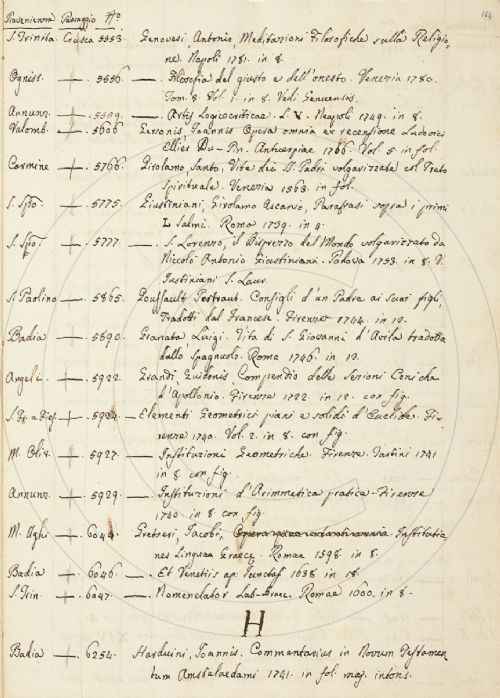 Provenienza Passaggio No 164
S. Trinita. Crusca 5553. Genovesi, Antonio, Meditazioni Filosofiche sulla Religio-
ne. Napoli 1781. in 8.
Ogniss. — + — 5556. — Filosofia del giusto e dell'onesto. Venezia 1780.
Tom. 2 Vol. 1. in 8. Vedi Genuensis.
Annunz. — + — 5559. — Artis Logicocriticae. L. V. Neapoli 1749. in 8.
Valomb. — + — 5606 Gersonis Joannis Opera omnia ex recensione Ludovici
Ellies Du-Pin. Antuerpiae 1706. Vol. 5 in fol.
Carmine — + — 5766. Girolamo, Santo, Vite dei SS. Padri volgarizzate col Prato
Spirituale. Venezia 1563. in fol.
S. Spto. — + — 5775. Giustiniani, Girolamo Ascanio, Parafrasi sopra i primi
L Salmi. Roma 1739. in 4.
S. Spto. — + — 5777. — S. Lorenzo, il Disprezzo del Mondo volgarizzato da
Niccolò Antonio Giustiniani. Padova 1753. in 8. V.
Iustiniani S. Laur.
S. Paolino — + — 5865. Goussault Consigli d'un Padre ai suoi figli,
Tradotti dal Francese. Firenze 1744. in 12.
Badia — + — 5890. Granata Luigi. Vita di S. Giovanni d'Avila tradotta
dallo Spagnuolo. Roma 1746. in 12.
Angeli. — + — 5922. Grandi, Guidonis, Compendio delle Sezioni Coniche
d'Apollonio. Firenze 1722. in 12. con fig.
— + — 5924. — Elementi Geometrici piani e solidi d'Euclide. Fi-
renze 1740. Vol. 2. in 8. con fig.
M. Oliv. — + — 5927. — Instituzioni Geometriche. Firenze. Tartini 1741
in 8. con fig.
Annunz. — + — 5929. — Instituzioni d'Arimmetica pratica. Firenze
1740. in 8. con fig.
M. Ughi — + — 6044. Gretseri, Jacobi, Institutio-
nes Linguae Graecę. Romae 1598. in 8.
Badia — + — 6046. — Et Venetiis ap. 1638 in 18.
S. Trin. — + — 6047. — Nomenclator Lat-Graec. Romae 1600. in 8.
H
Badia — + — 6254. Harduini, Joannis. Commentarius in Novum Testamen-
tum Amstelaedami 1741. in fol. maj. intons.